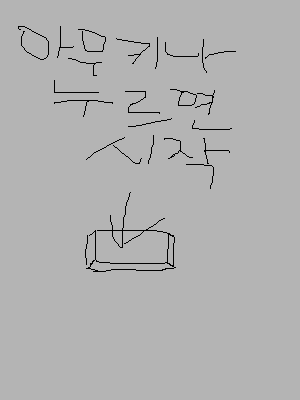 아무키나
누르면
시작